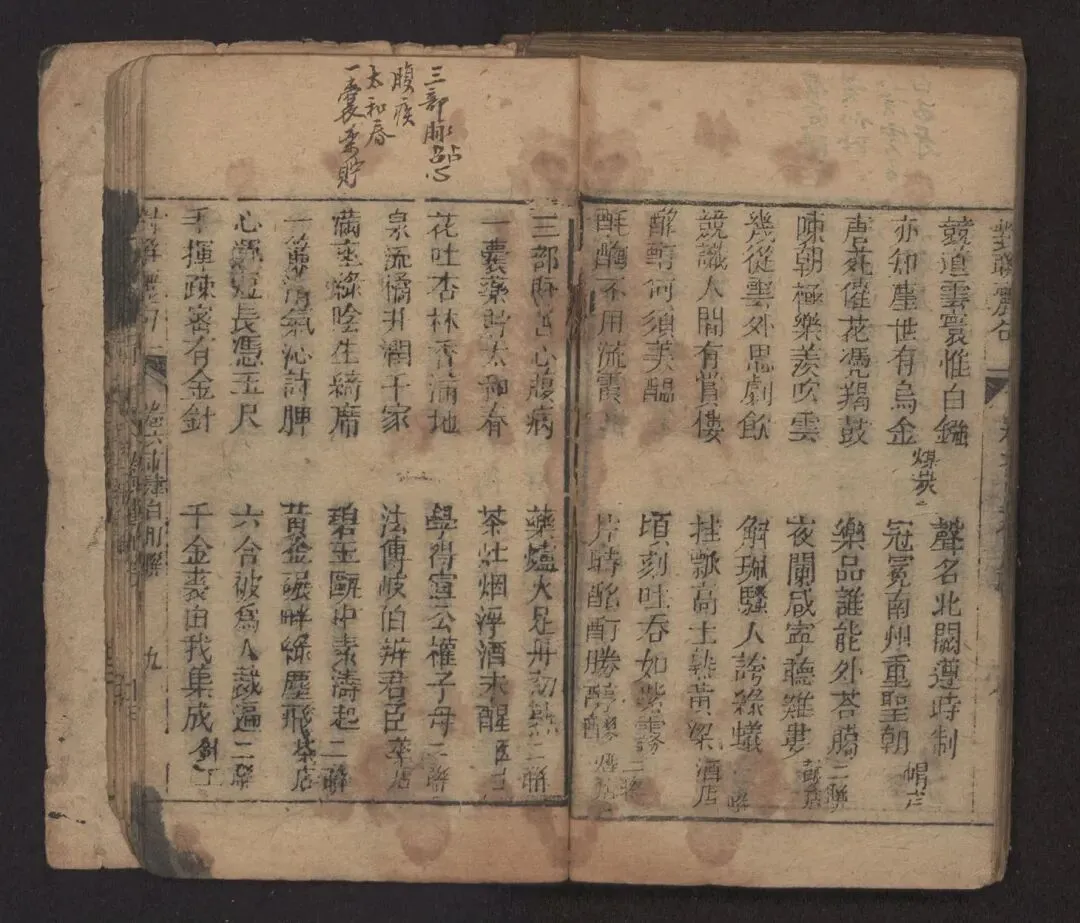 對聯麗句
競道雲寰惟白鏹 聲名北闕遵時制
亦知塵世有烏金 煤炭 冠冕南州重聖朝 帽店
唐苑催花憑羯鼓 樂品誰能外荅臈 二聯
陳朝極樂羨吹雲 夜闌咸寧聽雞婁 鼓店
幾從雲外思劇飲 解珮騷人誇綠蟻
競識人間有賞僂 挂瓢高士熱黃粱 酒店
醉醇何須美醞 頃刻吐吞如紫霧 二聯
酕醄不用流霞 片時酩酊勝醇醪 煙店
三部脉 心
腹疾
太和春
一囊藥貯
三部脉 心腹病 藥爐火足丹初熟 二聯
一囊藥貯太和春 茶灶烟浮酒未醒
花吐杏林香滿地 學得宣公權子母 二聯
泉流橘井潤千家 法傳岐伯辨君臣 藥店
滿座綠陰生綺席 碧玉甌中素濤起 二聯
一簾清氣沁詩脾 黃金碾畔綠塵飛 茶店
心 短長憑玉尺 六合被為人裁遍 二聯
手揮疎密有金針 千金裘由我集成
九